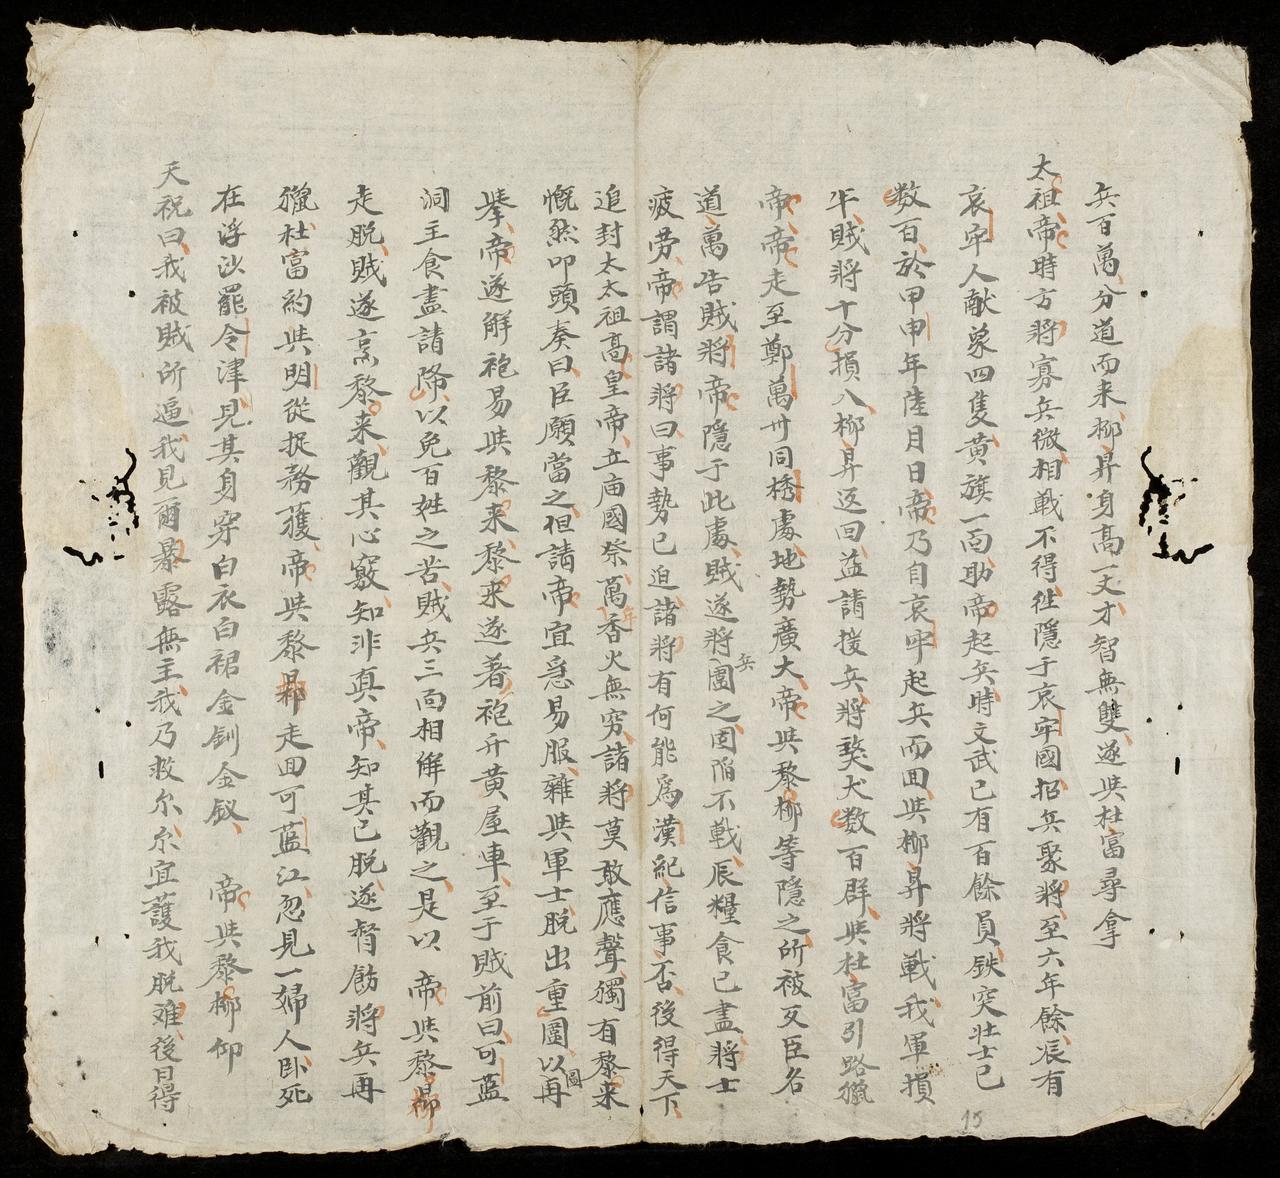 兵百萬、分道而来、柳昇身高一丈、才智無雙、遂共杜富尋拿
太祖帝、時方將寡兵微、相戰不得、徃隱于哀牢國、招兵聚將、至六年餘、辰有
哀牢人献象四隻、黄旗一面、助帝起兵、時文武已有百餘員、鉄突壮士已
数百、於甲申年陸月日、帝乃自哀牢起兵而囬、共柳昇將戰、我軍損
半、賊將十分損八、柳昇返回益請援兵、將獒犬数百群、共杜富引路獵
帝、帝走至鄭萬卅同椦處、地勢廣大、帝共黎柳等隱之、所被叐臣名
道、萬告賊將、帝隱于此處、賊遂將兵圍之、因陷不戰、辰糧食已盡、將士
疲劳、帝謂諸將曰、事勢已迫、諸將有何能爲漢紀信事否、後得天下、
追封太太祖高皇帝、立庙國祭、萬年香火無穷、諸將莫敢應聲、獨有黎来
慨然叩頭奏曰、臣願當之、但請帝宜急易服、雜共軍士脱出重圍、以再啚
擧、帝遂解袍易共黎来、黎来遂著袍升黄屋車、至于賊前曰、可藍
洞主食盡請降、以免百姓之苦、賊兵三面相解而觀之、是以 帝共黎柳
走脱、賊遂烹黎来、觀其心竅、知非真帝、知其已脱、遂督飭將兵再
獵、杜富約共明從捉務獲、帝共黎昴走囬可藍江、忽見一婦人卧死
在浮沙罷令津、見其身穿白衣白裙金釧金釵、 帝共黎柳仰
天祝曰、我被賊所逼、我見爾暴露無主、我乃救尔、尔宜護我脱难、後日得
15